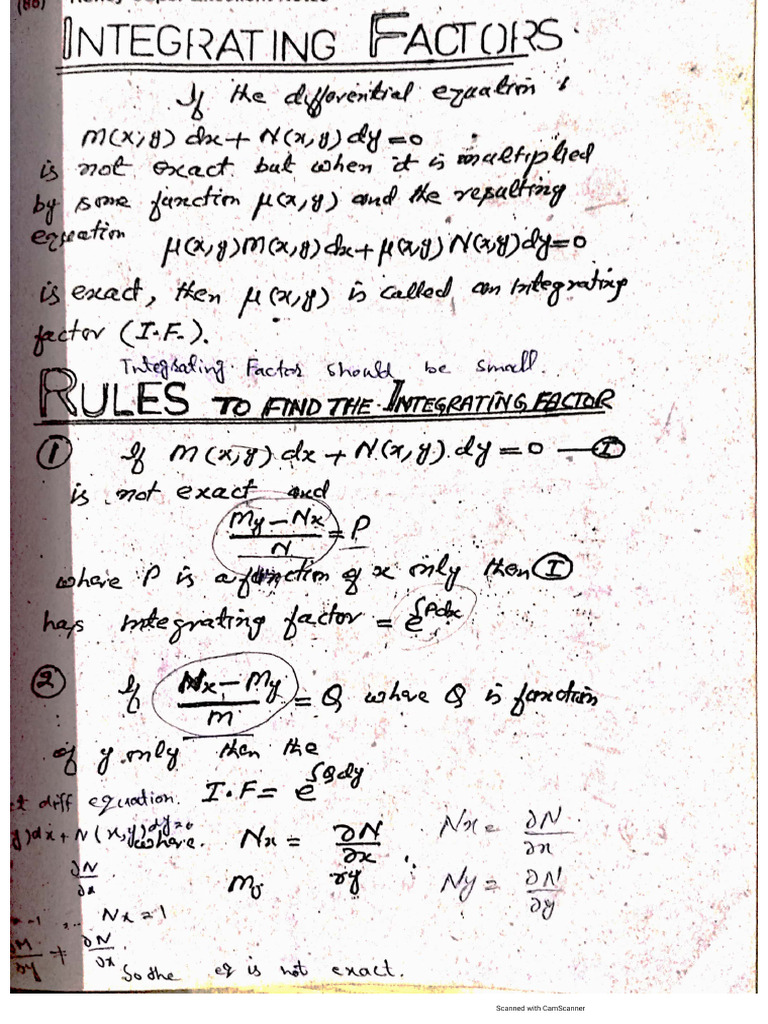 INTEGRATING FACTORS
If the differential equation
M(x,y) dx + N(x,y) dy = 0
is not exact but when it is multiplied
by some function μ(x,y) and the resulting
equation μ(x,y)M(x,y)dx + μ(x,y) N(x,y)dy = 0
is exact, then μ(x,y) is called an integrating
factor (I.F.).
Integrating Factor should be small.
RULES TO FIND THE INTEGRATING FACTOR
① If M(x,y) dx + N(x,y) dy = 0 — Ⓘ
is not exact and
(My - Nx)/N = P
where P is a function of x only then Ⓘ
has integrating factor = e^∫Pdx
② If (Nx - My)/M = Q where Q is function
of y only then the
diff equation. I.F = e^∫Qdy
y)dx + N(x,y)dy=0 where Nx = ∂N/∂x Nx = ∂N/∂x
∂N/∂x My ∂y Ny = ∂N/∂y
Nx = 1
∂M/∂y ≠ ∂N/∂x
So the eq is not exact.
Scanned with CamScanner